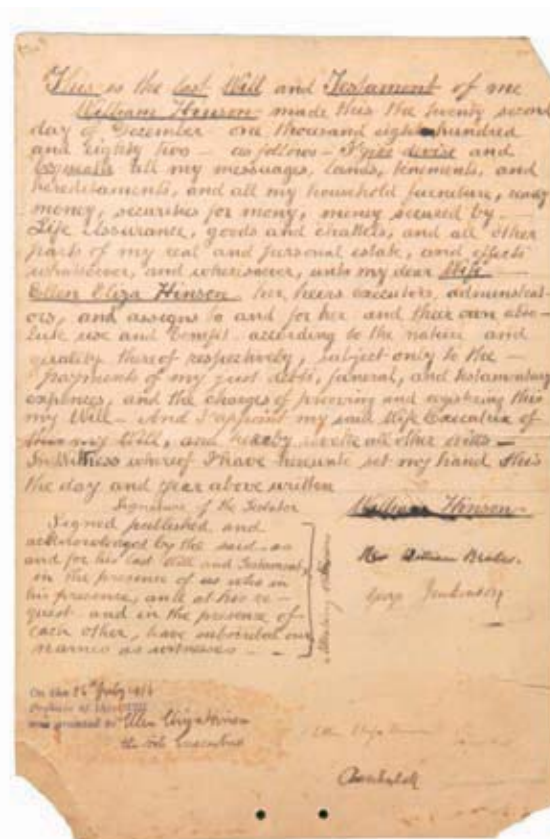 This is the last Will and Testament of me
William Hinson made this the twenty second
day of December one thousand eight hundred
and eighty two - as follows - I give devise and
bequeath all my messuages, lands, tenements, and
hereditaments, and all my household furniture, ready
money, securities for mony, money secured by
Life Assurance, goods and chattles, and all other
parts of my real and personal estate, and effects
whatsoever, and wheresoever, unto my dear Wife
Ellen Eliza Hinson her heirs executors, administrat-
ors, and assigns to and for her and their own abso-
lute use and benefit according to the nature and
quality thereof respectively, subject only to the -
payments of my just debts, funeral, and testamentary
expences, and the charges of proveing and registering this
my Will - And I appoint my said Wife Executrix of
this my Will, and hereby revoke all other wills -
In Witness whereof I have hereunto set my hand this
the day and year above written
Signature of the Testator
William Hinson
Signed published and
acknowledged by the said as
and for his last Will and Testament
in the presence of us who in
his presence, and at his re-
quest and in the presence of
each other, have subscribed our
names as witnesses - -
William
Jenkinson
On the 26th July
was granted to Ellen Eliza Hinson
the sole executrix
Ellen Eliza Hinson